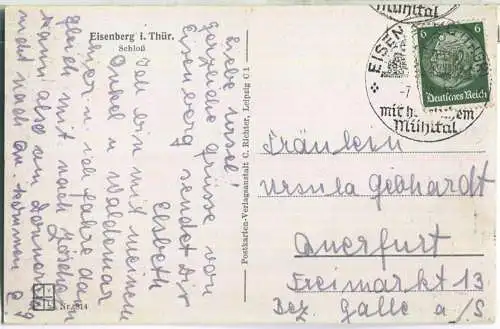 Eisenberg i. Thür.
Schloß
Liebe Ursel!
Herzliche Grüsse von
Eisenberg sendet Dir
Elsbeth
Ich bin mit meinem
Onkel u Waldemar
hier u ich fahre dann
gleich mit nach
kann also am
nicht nach
Nr. 814
Postkarten-Verlagsanstalt C. Richter, Leipzig C 1
Mühltal
EISEN
6 6
Deutsches Reich
mit herrlichem
Mühltal
Fräulein
Ursula Gebhardt
Querfurt
Freimarkt 13
Bez. Halle a/S